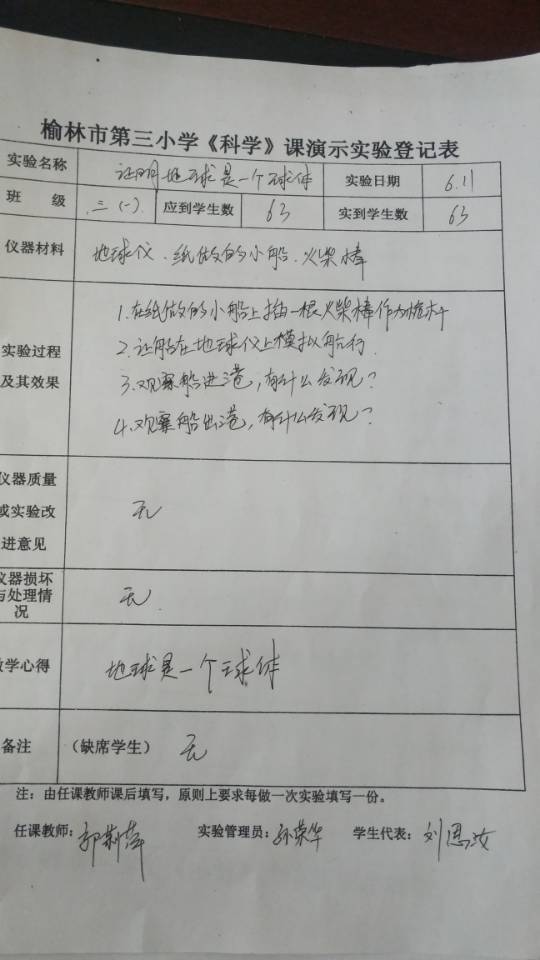 榆林市第三小学《科学》课演示实验登记表
实验名称 证明地球是一个球体 实验日期 6.11
班 级 三(一) 应到学生数 63 实到学生数 63
仪器材料 地球仪.纸做的小船.火柴棒
1.在纸做的小船上插一根火柴棒作为桅杆
实验过程 2.让船在地球仪上模拟航行.
及其效果 3.观察船进港,有什么发现?
4.观察船出港,有什么发现?
仪器质量
或实验改 无
进意见
仪器损坏
与处理情 无
况
教学心得 地球是一个球体
备注 (缺席学生) 无
注:由任课教师课后填写,原则上要求每做一次实验填写一份。
任课教师: 实验管理员:孙荣华 学生代表:刘恩汝